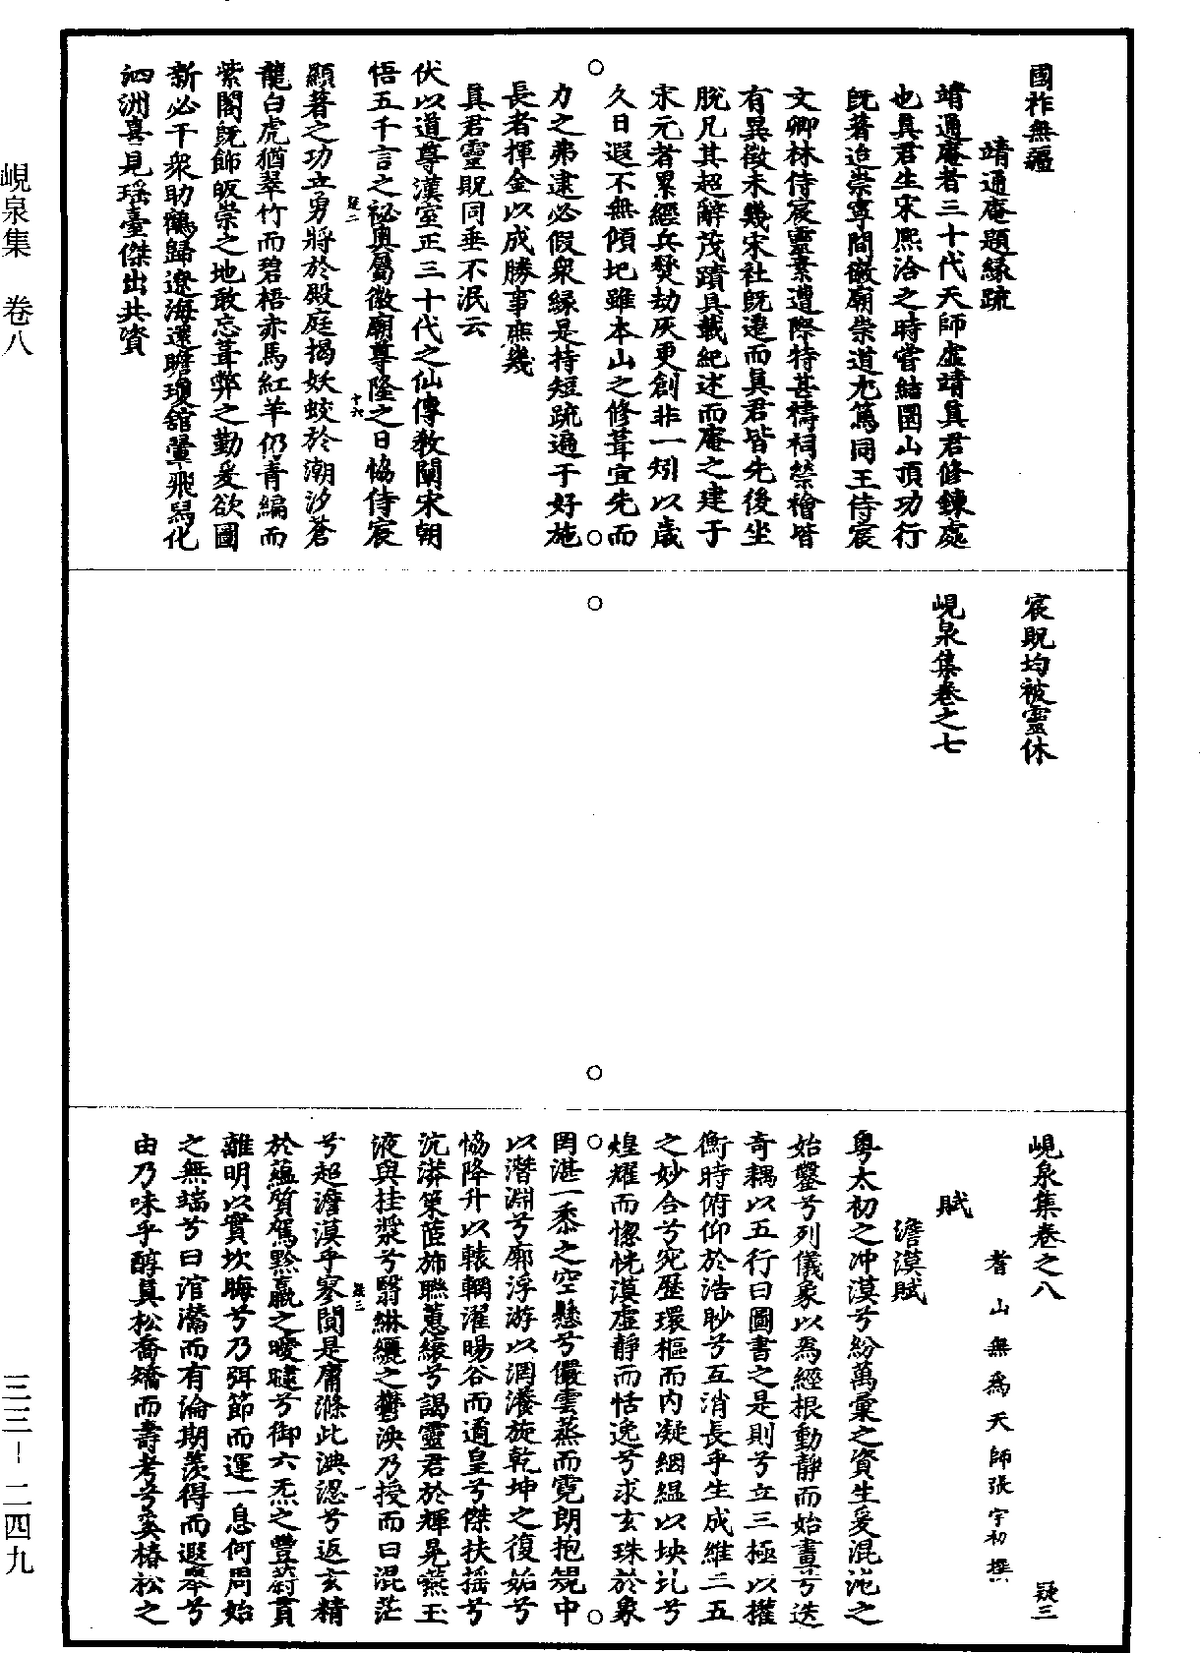 國祚無疆
靖通庵題緣疏
靖通庵者三十代天師虛靖真君修鍊處
也真君生宋熙洽之時嘗結圜山頂功行
既著迨崇寧間徽廟崇道尤篤同王侍宸
文卿林侍宸靈素遭際特甚禱祠禜禬皆
有異徵未幾宋社既遷而真君皆先後坐
脫凡其超辭茂蹟具載紀述而庵之建于
宋元者累經兵燹劫灰更創非一矧以歲
久日遐不無傾圮雖本山之修葺宜先而
力之弗逮必假衆緣是持短疏遍于好施
長者揮金以成勝事庶幾
真君靈貺同垂不泯云
伏以道尊漢室正三十代之仙傳教闡宋朝
悟五千言之祕奧屬徽廟尊隆之日恊侍宸
疑二
十六
顯著之功立勇將於殿庭揭妖蛟於潮汐蒼
龍白虎猶翠竹而碧梧赤馬紅羊仍青編而
紫閣既飾皈崇之地敢忘葺弊之勤爰欲圖
新必干衆助鶴歸遼海還瞻瓊館翬飛舄化
泗洲喜見瑶臺傑出共資
宸貺均被靈休
峴泉集卷之七
峴泉集卷之八
疑三
耆山無爲天師張宇初撰
賦
澹漠賦
粤太初之冲漠兮紛萬彙之資生爰混沌之
始鑿兮列儀象以爲經根動靜而始晝兮迭
奇耦以五行曰圖書之是則兮立三極以權
衡時俯仰於浩眇兮互消長乎生成維二五
之妙合兮宛歷環樞而内凝絪縕以坱圠兮
煌耀而惚恍漠虛靜而恬逸兮求玄珠於象
罔湛一黍之空懸兮儼雲蒸而霓朗抱規中
以潛淵兮廓浮游以滉瀁旋乾坤之復姤兮
恊降升以轅輞濯暘谷而遹皇兮傑扶摇兮
沆漭策茝斾聯蕙綏兮謁靈君於輝晃燕玉
液與桂漿兮翳綝纚之鬱泱乃授而曰混茫
疑三
一
兮超澹漠乎寥閴是庸滌此淟涊兮返玄精
於蘊質駕黔羸之曖曃兮御六炁之豐蔚貫
離明以實坎晦兮乃弭節而運一息何周始
之無端兮曰涫潏而有淪期羨得而遐舉兮
由乃味乎醇真松喬矯而壽考兮奚椿松之
峴泉集　卷八
三三－二四九